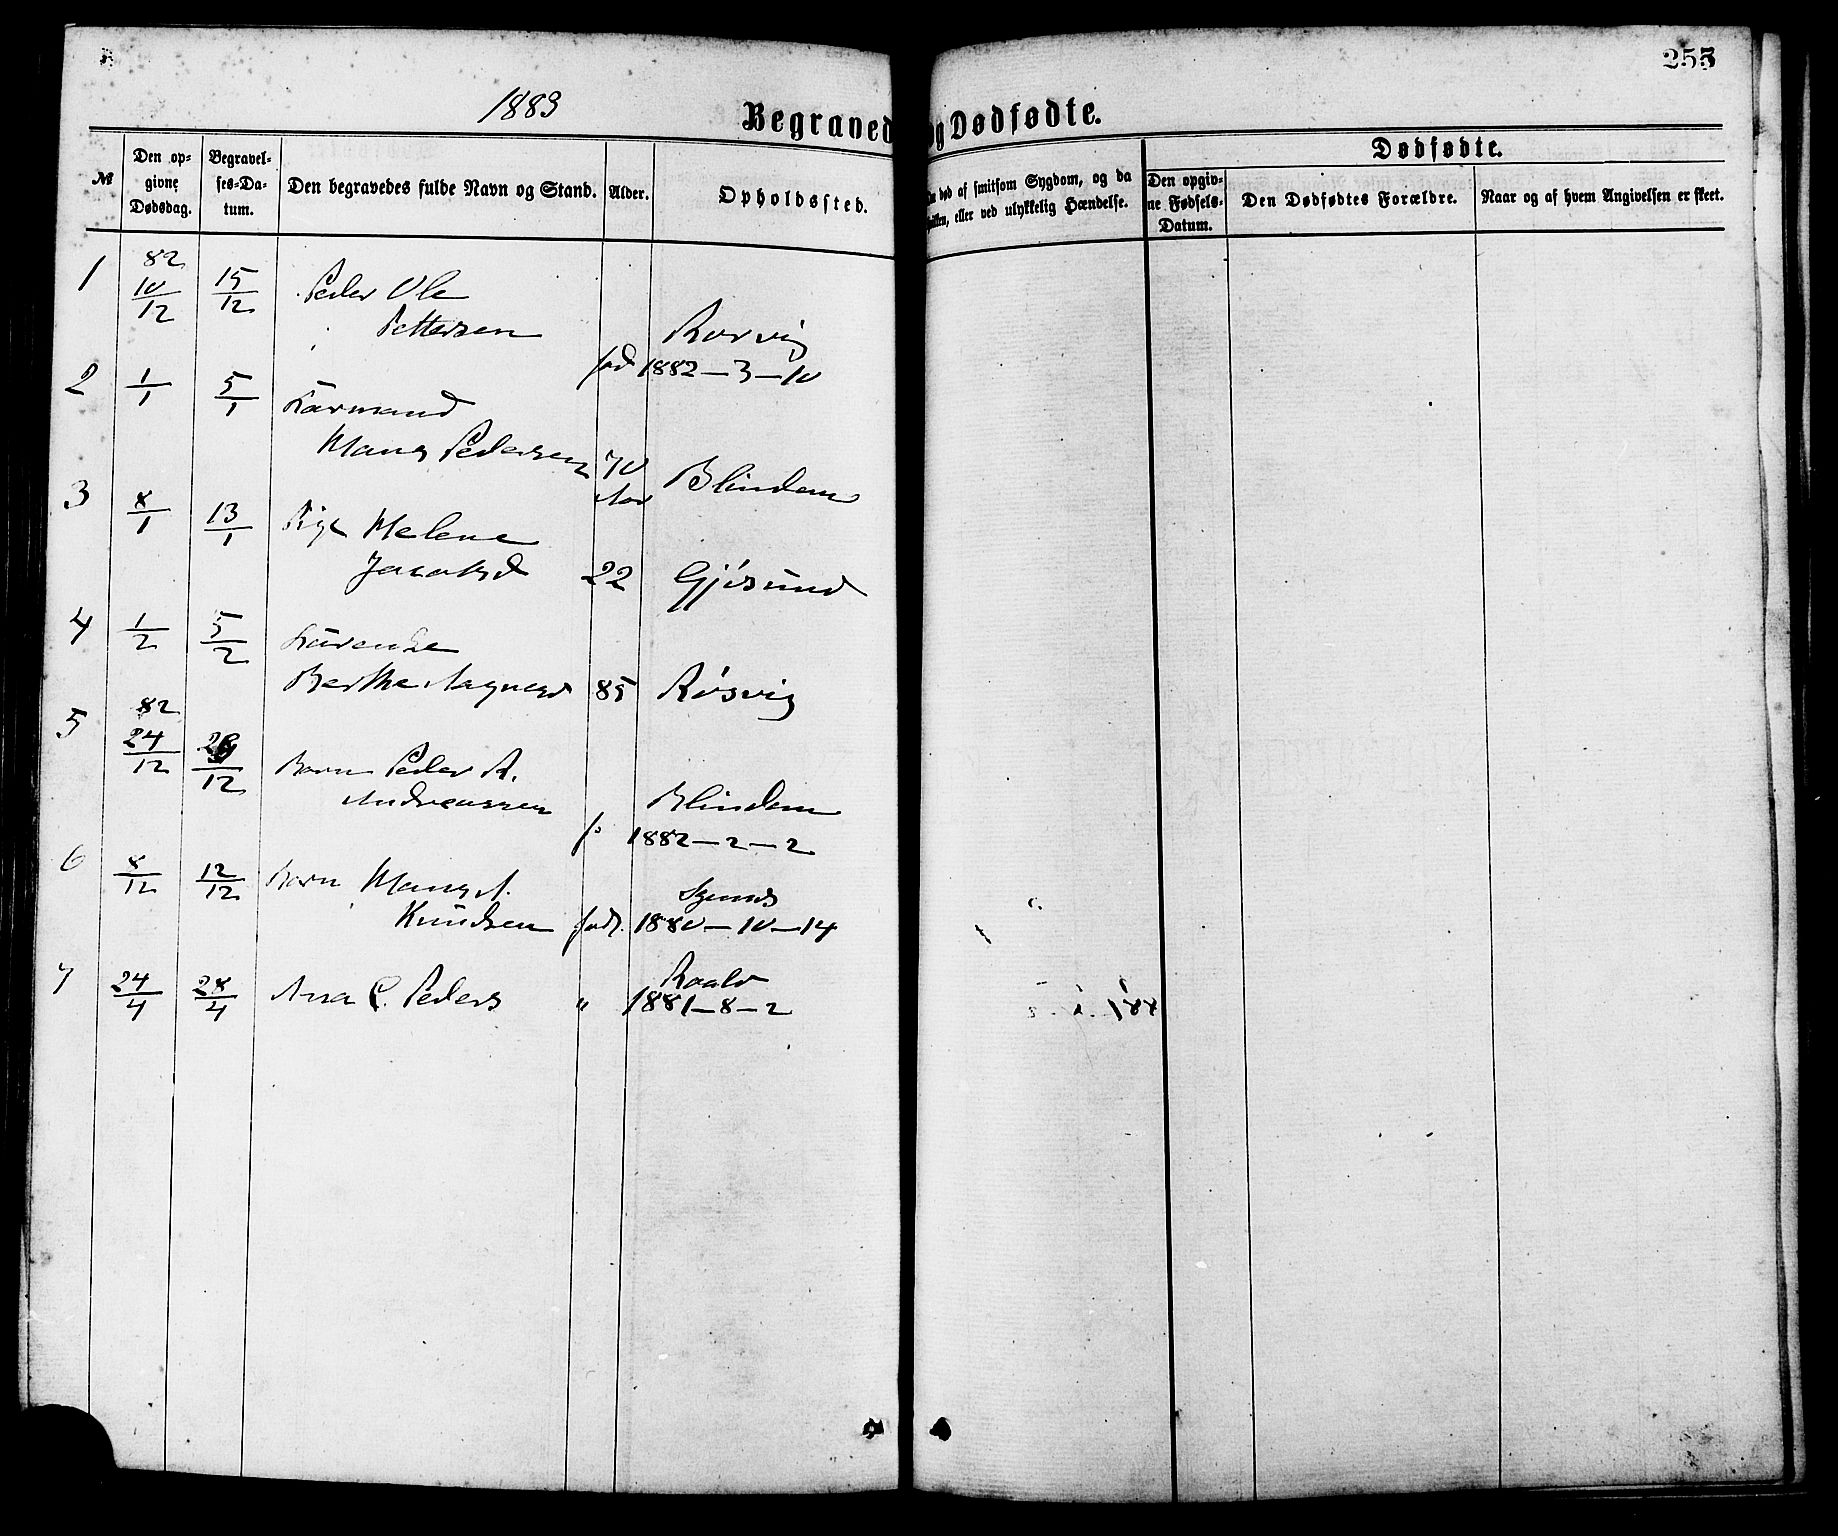 1883
255
Begraved
og Dødfødte.
№
Den op-
givne
Dødsdag.
Begravel-
ses-Da-
tum.
Den begravedes fulde Navn og Stand.
Alder.
Opholdssted.
død af smitsom Sygdom, og da
eller ved ulykkelig Hændelse.
Dødfødte.
Den opgiv-
ne Fødsels-
Datum.
Den Dødfødtes Forældre.
Naar og af hvem Angivelsen er skeet.
82
1 10/12 15/12 Peder Ole
Pettersen Rørvig
fød 1882-3-10
2 1/1 5/1 Kaarmand
Hans Pedersen 70 Blindem
Aar
3 8/1 13/1 Pige Helene
Jacobsd 22 Gjøsund
4 1/2 5/2
Berthe Aagesd 85 Røsvig
82
5 24/12 /12 Barn Peder A.
Andreassen Blindem
f. 1882-2-2
6 8/12 12/12 Barn Hans A.
Knudsen fød. 1880-10-14
7 24/4 28/4 Ana C. Peders Roald
" 1881-8-2